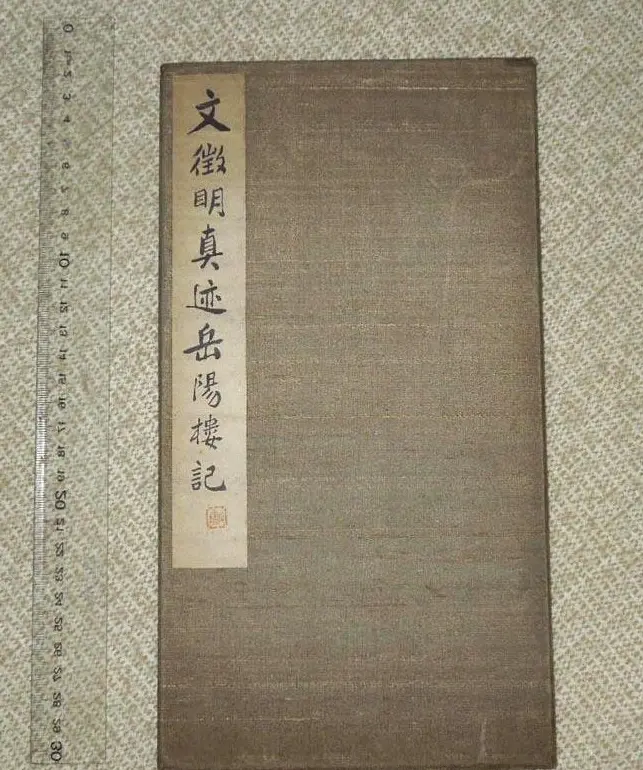 文徵明真迹岳陽樓記
0
1
2
3
4
6
7
8
9
10
11
12
13
14
15
16
17
18
19
20
21
22
23
24
25
26
27
28
29
30